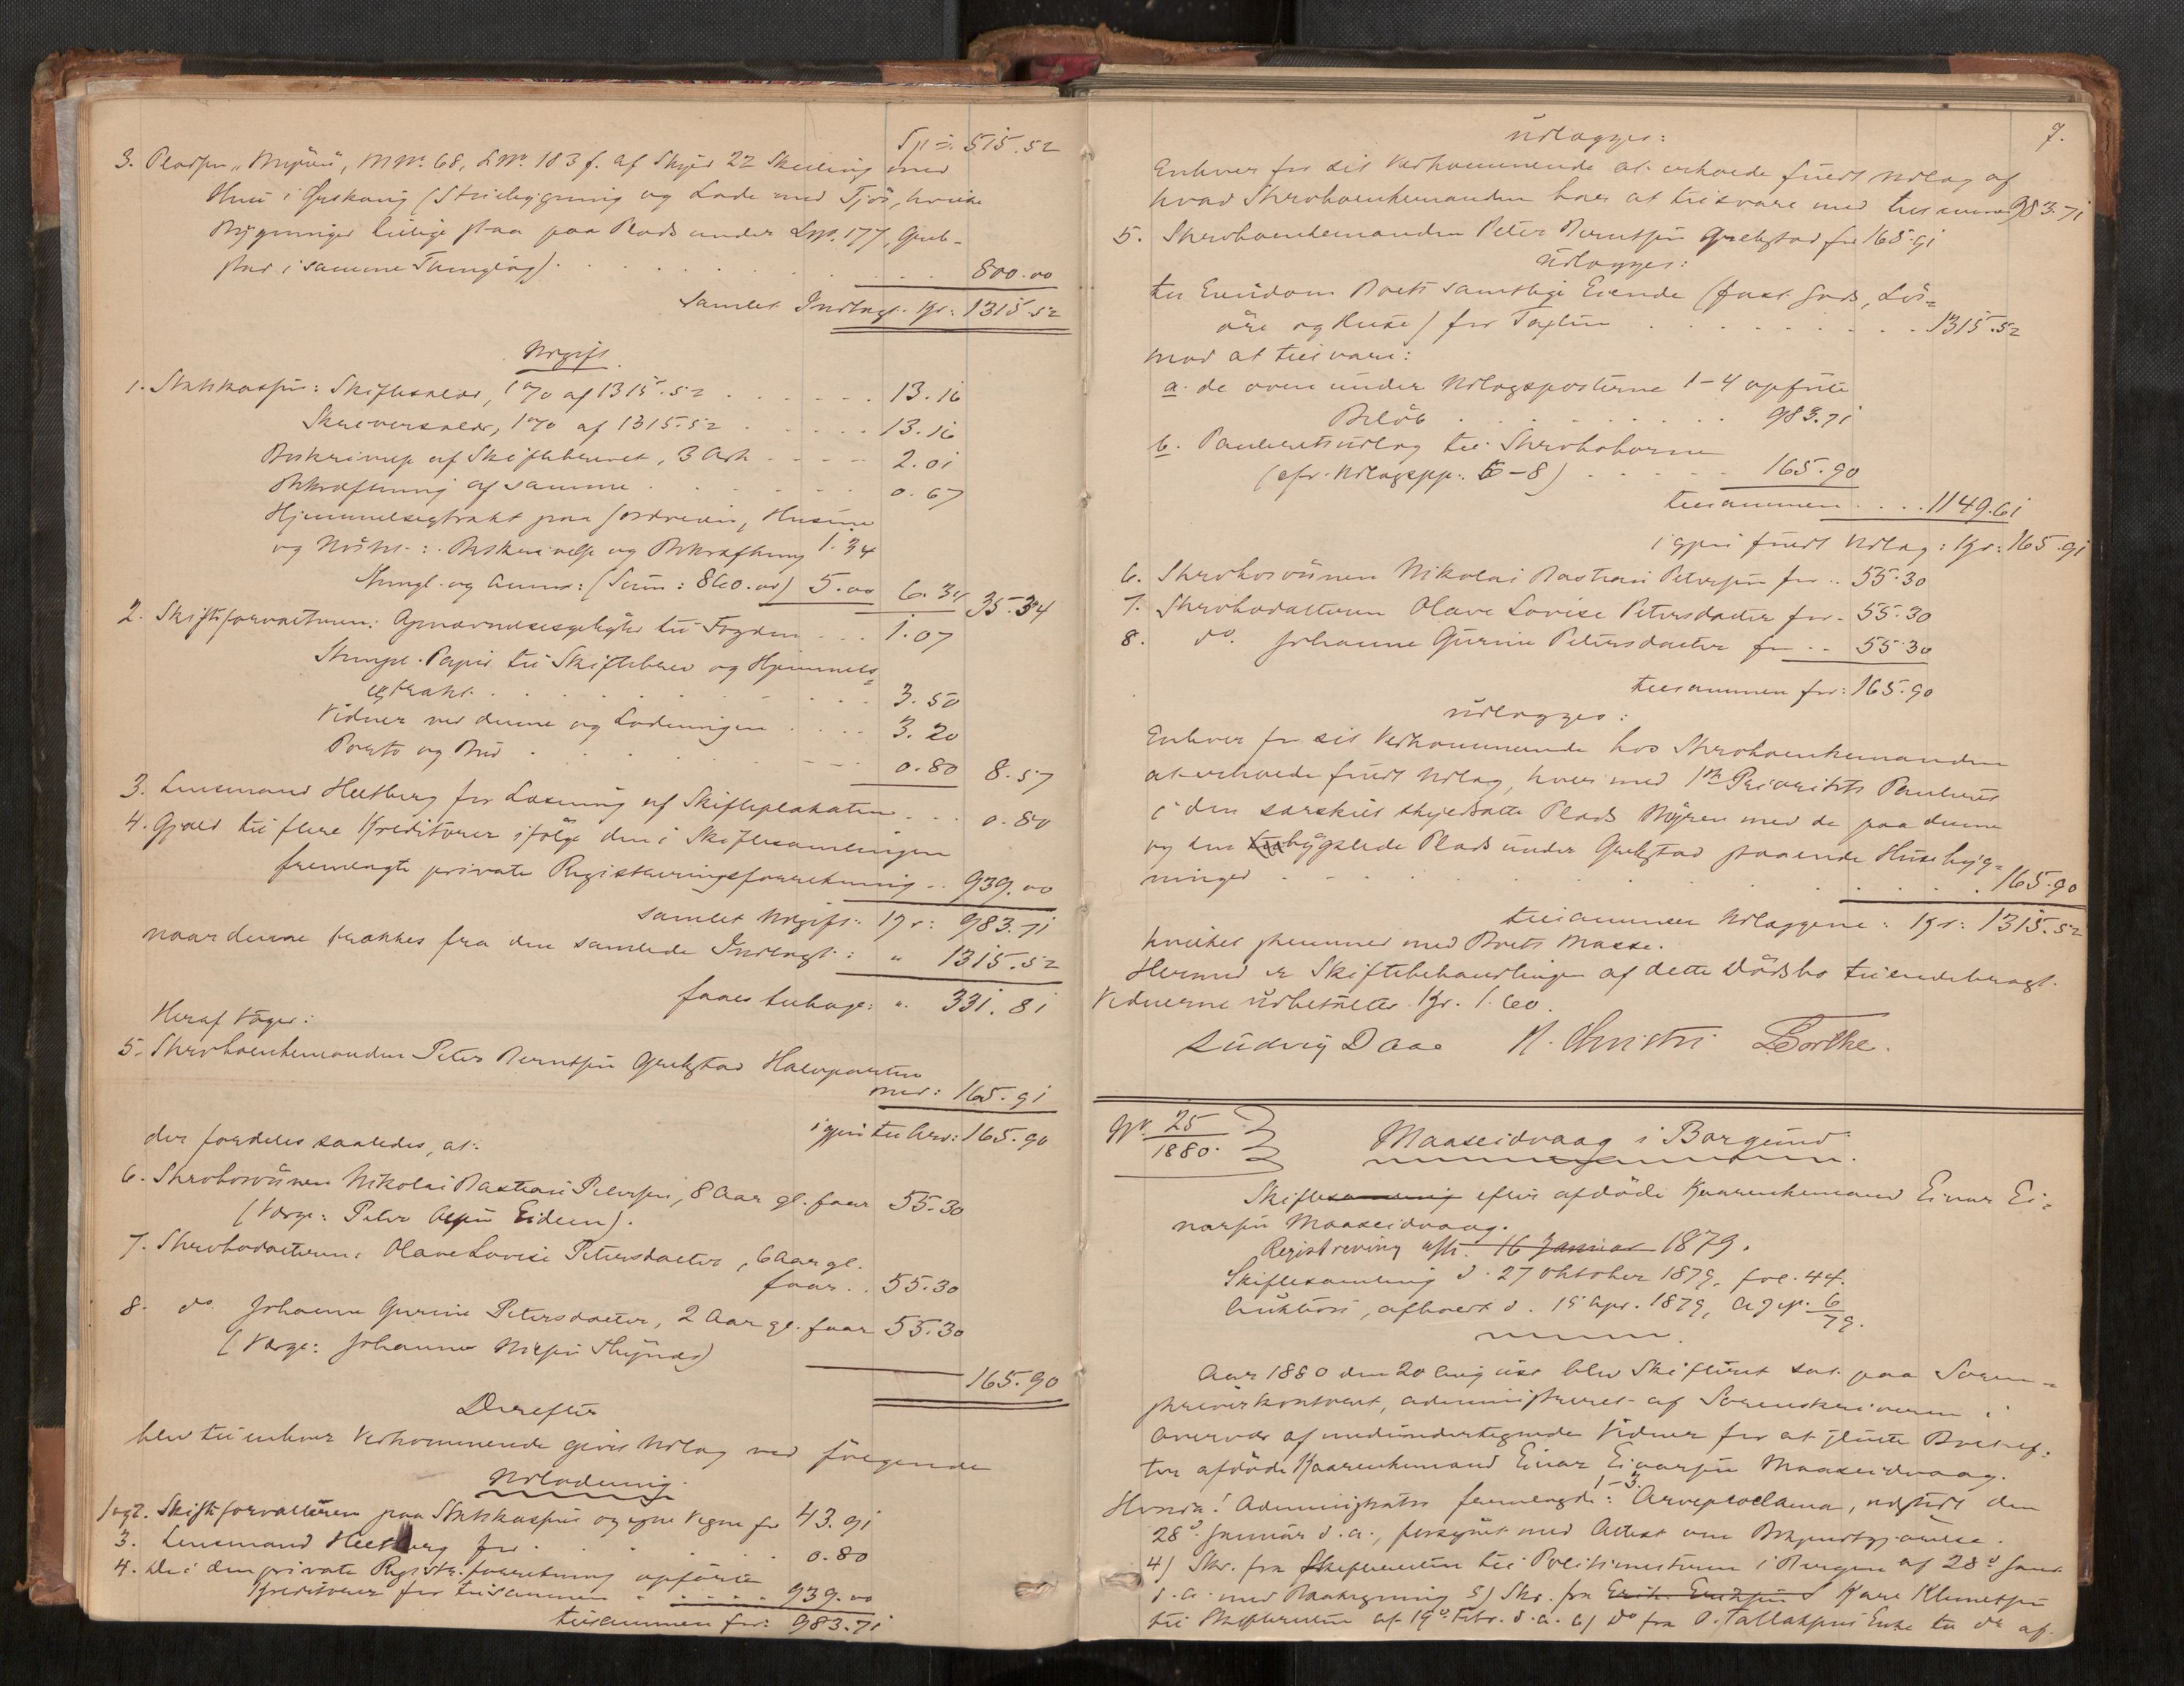 Tp =: 515.52
3. Pladsen „Myren", MNo. 68, LNo. 183 f. af Skyld 22 Skilling med
Huse i Ørskoug (Stuebygning og Lade med Fjös, hvilke
Bygninger tillige staa paa Plads under LNo. 177, Grebstad
i samme Thinglag). 800.00
Samlet Indtægt. Kr: 1315.52
Udgift.
1. Statskassen: Skiftesalær, 1% af 1315.52 13.16
Skriversalær, 1% af 1315.52 13.16
Beskrivelse af Skiftebrevet, 3 Ark 2.01
Bekræftning af samme 0.67
Hjemmelsextrakt paa Jordveien, Husene
og Nöstet: Beskrivelse og Bekræftning 1.34
Thingl. og Annot: (Sum: 860.00) 5.00 6.34 35.34
2. Skifteforvalteren: Opnævnelsesgebyhr til Fogden 1.07
Stempl. Papir til Skiftebrev og Hjemmels=
extrakt 3.50
Vidner ved denne og Lodningen 3.20
Porto og Bud 0.80 8.57
3. Lensmand Heltberg for Læsning af Skifteplakaten 0.80
4. Gjæld til flere Kreditorer ifölge den i Skiftesamlingen
fremlagte private Registreringsforretning 939.00
samlet Udgift: Kr: 983.71
naar denne trækkes fra den samlede Indtægt: „ 1315.52
faaes tilbage: „ 331.81
Heraf tager:
5. Stervboenkemanden Peter Berntsen Grebstad Halvparten
med: 165.91
igjen til Arv: 165.90
der fordeles saaledes, at:
6. Stervbosönnen Nikolai Bastian Petersen, 8 Aar gl. faar 55.30
(Værge: Peter Eideen).
7. Stervbodatteren: Olave Lovise Petersdatter, 6 Aar gl.
faar 55.30
8. do. Johanne Gurine Petersdatter, 2 Aar gl. faar 55.30
(Værge: Johannes Nilsen )
165.90
Derefter
blev til enhver Vedkommende givet Udlæg ved fölgende
Udlodning.
1 og 2. Skifteforvalteren paa Statskassens og egne Vegne for 43.91
3. Lensmand Heltberg for 0.80
4. De i den private Registr.forretning opförte
Kreditorer for tilsammen 939.00
tilsammen for: 983.71
7.
udlægges:
Enhver for sit Vedkommende at erholde fuldt Udlæg af
hvad Stervboenkemanden har at tilsvare med tilsammen 983.71
5. Stervboenkemanden Peter Berntsen Grebstad for 165.91
Udlægges:
til Eiendom Boets samtlige Eiende (fast Gods, Lös=
öre og Huse) for Taxten 1315.52
mod at tilsvare:
a. de oven under Udlægsposterne 1-4 opförte
Belöb 983.71
b. Panteretsudlæg til Stervbobørnene
(cfr. Udlægspp. 6-8) 165.90
tilsammen 1149.61
igjen fuldt Udlæg: Kr: 165.91
6. Stervbosönnen Nikolai Bastian Petersen for 55.30
7. Stervbodatteren Olave Lovise Petersdatter for 55.30
8. do. Johanne Gurine Petersdatter for 55.30
tilsammen for: 165.90
udlægges:
Enhver for sit Vedkommende hos Stervboenkemanden
at erholde fuldt Udlæg, hver med 1ste Prioritets Panteret
i den særskilt skyldsatte Plads Myren med de paa denne
og den bygslede Plads under Grebstad staaende Husebyg=
ninger 165.90
tilsammen Udlæggene: Kr: 1315.52
hvilket stemmer med Boets Masse.
Hermed er Skiftebehandlingen af dette Dödsbo tilendebragt.
Vidnerne udbetaltes Kr. 1.60.
Ludvig Daae N. Christie
No. 25
1880.
Maaseidvaag i Borgund
Skiftesamling efter afdöde Kaarenkemand Einar Ei=
narsen Maaseidvaag.
Registrering afh. 16 Januar 1879.
Skiftesamling d. 27 Oktober 1879, fol. 44.
Auktion, afholdt d. 15 Apr. 1879, 6/79.
Aar 1880 den 20 August blev Skifteret sat paa Soren=
skriverkontoret, administreret af Sorenskriveren i
Overvær af medundertegnede Vidner for at slutte Boet ef=
ter afdöde Kaarenkemand Einar Einarsen Maaseidvaag.
Hvorda! Administrator fremlagde: 1-3 Arveproclama, udstedt den
28de Januar d. a., forsynet med Attest om Bekjendtgjørelse.
4) Skr. fra Skifteretten til Politimesteren i Bergen af 28d Janr.
d. a. med Paategning 5) Skr. fra Erik Eriksen Kare Klemetsen
til Skifteretten af 19d Febr. d. a. 6) do fra P. Tallaksens Enke til do af